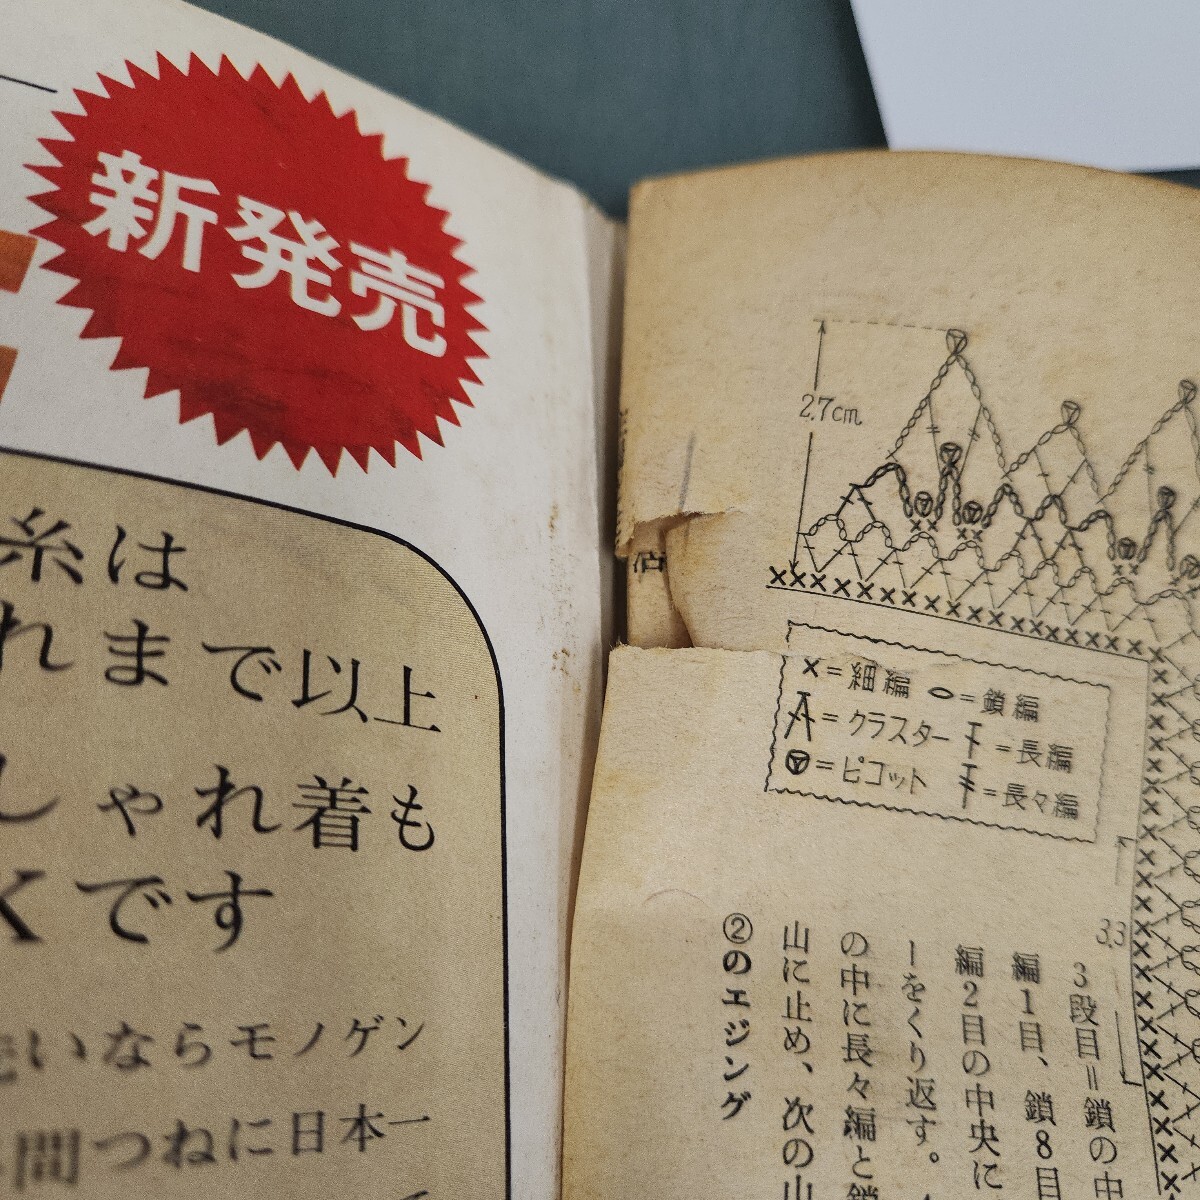 新発売
糸は
れまで以上
しゃれ着も
くです
いならモノゲン
間つねに日本一
2.7cm
×=細編
=鎖編
=クラスター
=長編
=ピコット
=長々編
3.3
3段目=鎖の中
編1目、鎖8目
編2目の中央に
ーをくり返す。
の中に長々編と鎖
山に止め、次の山
②のエジング